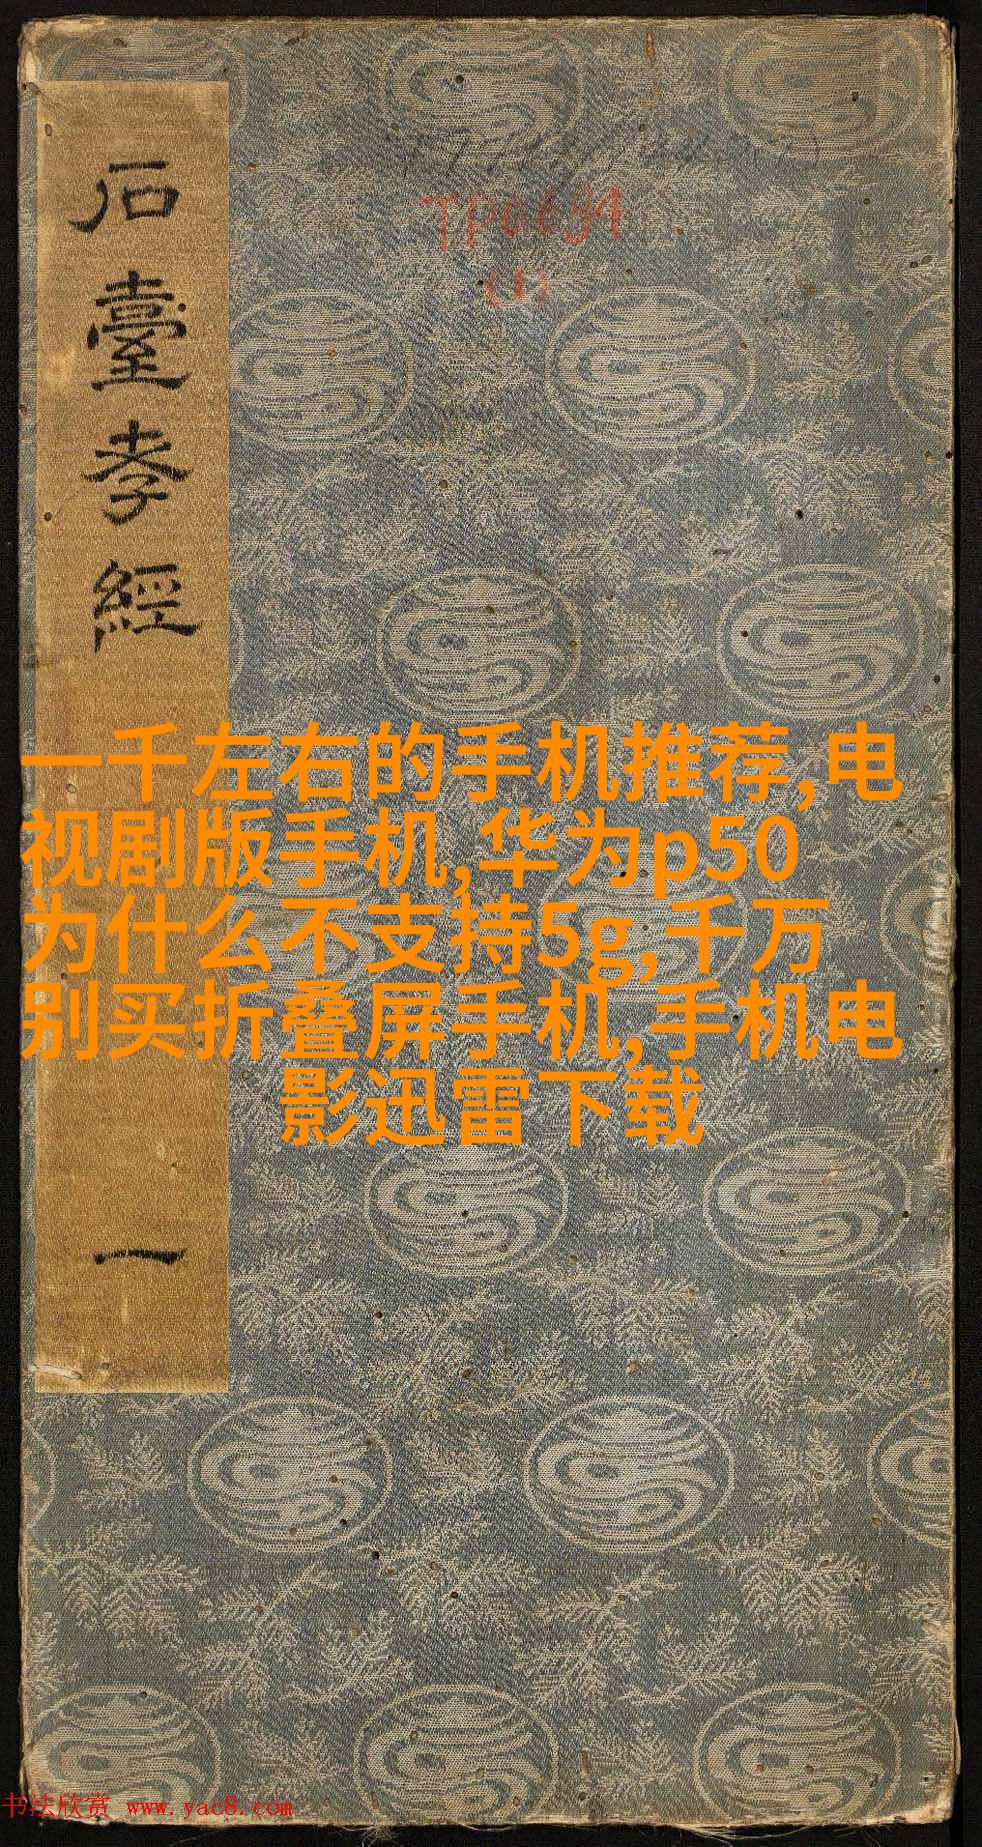 石臺孝經
一
TP0691
(1)
一千左右的手机推荐,电
视剧版手机,华为p50
为什么不支持5g,千万
别买折叠屏手机,手机电
影迅雷下载
书法欣赏 www.yac8.com